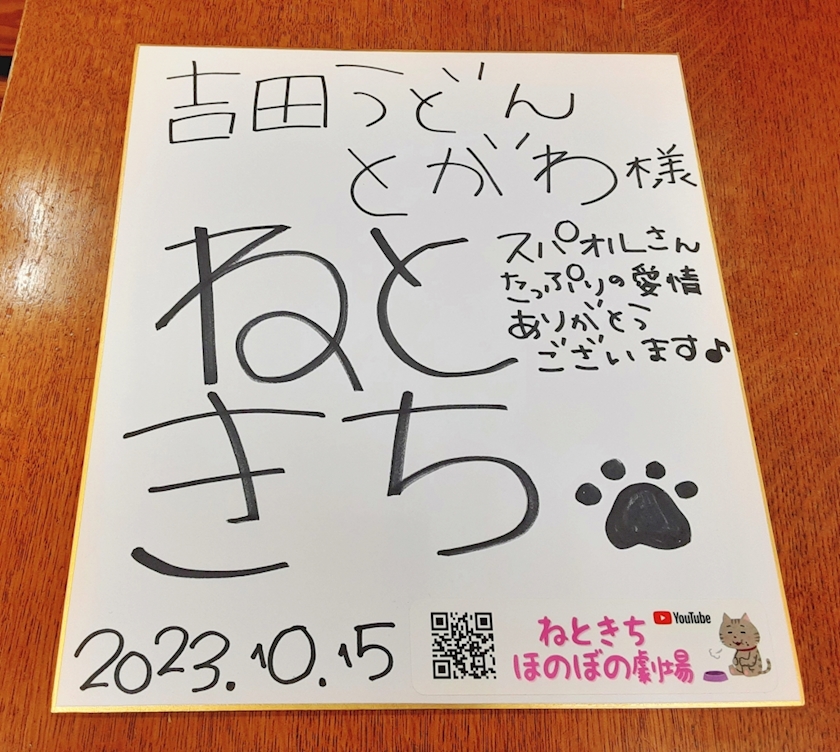 吉田うどん
とがわ様
ねと
きち
スパオルさん
たっぷりの愛情
ありがとう
ございます♪
2023.10.15
YouTube
ねときち
ほのぼの劇場